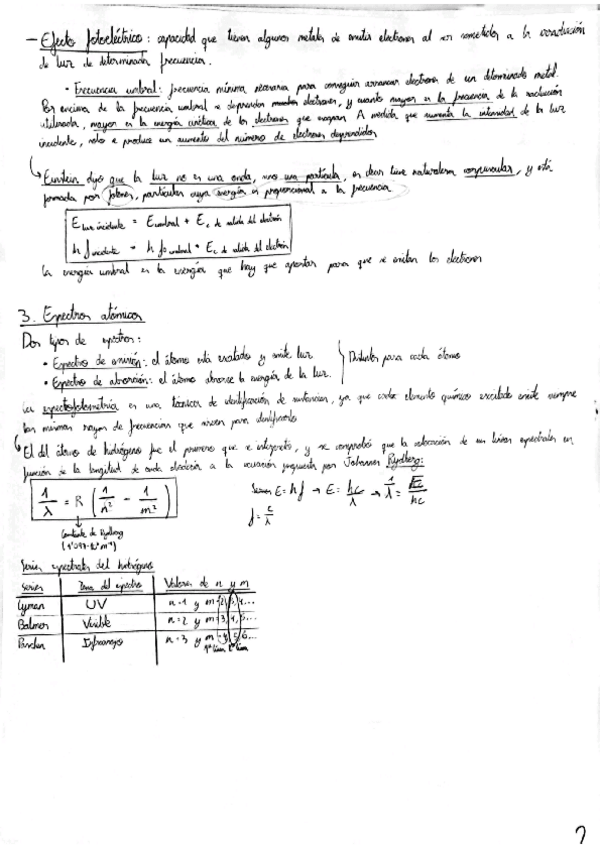 - Efecto fotoeléctrico: capacidad que tienen algunos metales de emitir electrones al ser sometidos a la
de luz de determinada frecuencia.
• Frecuencia umbral: frecuencia mínima necesaria para conseguir arrancar electrones de un determinado metal.
Por encima de la frecuencia umbral se desprenden electrones, y cuanto mayor es la frecuencia de la radiación
utilizada, mayor es la energía cinética de los electrones que escapan. A medida que aumenta la intensidad de la luz
incidente, solo se produce un aumento del número de electrones desprendidos
Einstein dijo que la luz no es una onda, sino una partícula, es decir tiene naturaleza corpuscular, y está
formada por fotones, partículas cuya energía es proporcional a la frecuencia
E luz incidente = E umbral + Ec de salida del electrón
h f incidente = h f umbral + Ec de salida del electrón
La energía umbral es la energía que hay que aportar para que se emitan los electrones
3. Espectros atómicos
Dos tipos de espectros:
• Espectro de emisión: el átomo está excitado y emite luz
• Espectro de absorción: el átomo absorbe la energía de la luz.
Distintos para cada átomo
La espectrofotometría es una técnica de identificación de sustancias, ya que cada elemento químico excitado emite siempre
las mismas rayas de frecuencias que sirven para identificarlo
El del átomo de hidrógeno fue el primero que se interpretó, y se comprobó que la colocación de sus líneas espectrales en
función de la longitud de onda obedecía a la ecuación propuesta por Johannes Rydberg:
1/λ = R (1/n² - 1/m²)
E = hf → E = hc/λ → 1/λ = E/hc
f = c/λ
Constante de Rydberg
Series espectrales del hidrógeno
Series Zona del espectro Valores de n y m
Lyman UV n=1 y m=2,3,4...
Balmer Visible n=2 y m=3,4,5...
Paschen Infrarrojo n=3 y m=4,5,6...
1ª línea 2ª línea
2